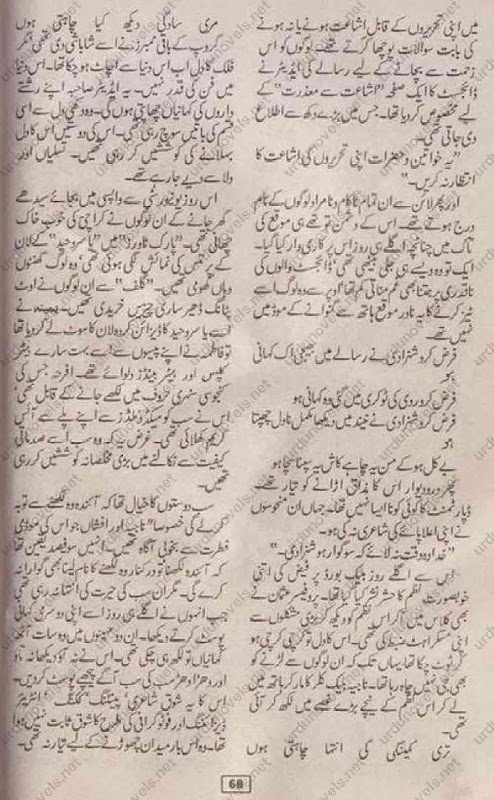 میں اپنی تحریروں کے قابل اشاعت ہونے یا نہ ہونے
کی بابت سوالات پوچھا کرتے تھے۔ لوگوں کو اس
زحمت سے بچانے کے لیے رسالے کی ایڈیٹر نے
ڈائجسٹ کا ایک صفحہ "اشاعت سے معذرت" کے
لیے مخصوص کر دیا تھا۔ جس میں بڑے دکھ سے اطلاع
دی جاتی تھی۔
"یہ خواتین و حضرات اپنی تحریروں کی اشاعت کا
انتظار نہ کریں۔"
اور پھر لائن سے ان تمام ناکام و نامراد لوگوں کے نام
درج ہوتے تھے۔ اس کے دشمن تو تھے ہی موقع کی
تاک میں چنانچہ اگلے ہی روز اس پر کاری وار کیا گیا۔
ایک تو وہ ویسے ہی جلی بیٹھی تھی' ڈائجسٹ والوں کی
ناقدری پر جتنا بھی غم مناتی کم تھا اوپر سے وہ لوگ اسے
تیز کرنے کا یہ نادر موقع ہاتھ سے گنوانے کے موڈ میں
نہیں تھے۔
فرض کرو شنزادی نے رسالے میں بھیجی اک کہانی
ہو
فرض کرو ردی کی ٹوکری میں گئی وہ کہانی ہو
فرض کرو شنزادی نے نیند میں دیکھا مکمل ناول چھپتا
ہو
بے کل ہو کے من یہ چاہے کاش یہ سپنا سچا ہو
پھر در و دیوار اس کا مذاق اڑانے کو تیار تھے۔
ڈپارٹمنٹ کا کوئی کونا ایسا نہیں تھا۔ جہاں ان منحوسوں
نے اپنی اعلا پائے کی شاعری نہ کی ہو۔
"خدا وہ وقت نہ لائے کہ سوگوار ہو شنزادی۔"
اس سے اگلے روز بلیک بورڈ پر فیض کی اتنی
خوبصورت نظم کا حشر نشر کیا گیا تھا۔ پروفیسر عثمان نے
بھی کلاس میں آ کر اس نظم کو دیکھ کر بڑی مشکلوں سے
اپنی مسکراہٹ ضبط کی تھی۔ اس کا دل تو کرچی کرچی ہو
کر ٹوٹ چکا تھا یہاں تک کہ ان لوگوں سے لڑنے کو
بھی جی نہیں چاہ رہا تھا۔ ناجیہ بلیک کلر مار کر ہاتھ میں
لے کر اس نظم کے نیچے بڑے غصے میں لکھ کر آئی
تھی۔
تری کمینگی کی انتہا چاہتی ہوں
مری سادگی دیکھ کیا چاہتی ہوں
گروپ کے باقی ممبرز نے اسے شاباشی دی تھی مگر
فلک کا دل اب اس دنیا سے اچاٹ ہو چکا تھا۔ اس دنیا
میں فن کی قدر نہیں۔ یہ ایڈیٹر صاحبہ اپنے رشتے
داروں کی کہانیاں چھاپتی ہوں گی۔ وہ دکھی دل سے اسی
قسم کی باتیں سوچ رہی تھی۔ اس کی دوستیں اس کا دل
بہلانے کی کوششیں کر رہی تھیں۔ تسلیاں اور
دلاسے دیے جا رہے تھے۔
اس روز یونیورسٹی سے واپسی میں بجائے سیدھے
گھر جانے کے ان لوگوں نے کراچی کی خوب خاک
چھانی تھی۔ "پارک ٹاورز" میں "یاسر وحید" کے لان
کے پرنٹس کی نمائش لگی ہوئی تھی' وہ لوگ گھنٹوں
وہاں گھومی تھیں۔ "گلف" سے ان لوگوں نے اوٹ
پٹانگ ڈھیر ساری چیزیں خریدی تھیں۔ نے
اسے یاسر وحید کا ڈیزائن کردہ لان کا سوٹ لے کر دیا تھا
تو فاطمہ نے اپنے پیسوں سے اسے بہت سارے ہیئر
کلپس اور ہیئر بینڈز دلوائے تھے۔ افرحہ جس کی
کنجوسی سنہری حروف میں لکھے جانے کے قابل تھی'
اس نے سب کو میکڈونلڈز سے اپنے پلے سے آئس
کریم کھلائی تھی۔ غرض یہ کہ وہ سب اسے صدماتی
کیفیت سے نکالنے میں بڑی مخلصانہ کوششیں کر رہی
تھیں۔
سب دوستوں کا خیال تھا کہ آئندہ وہ لکھنے سے توبہ
کر لے گی خصوصاً" ناجیہ اور افشاں جو اس کی موڈی
فطرت سے بخوبی آگاہ تھیں۔ انہیں سو فیصد یقین تھا
کہ آئندہ لکھنا تو در کنار وہ لکھنے کا نام لینا بھی گوارا نہ
کرے گی۔ مگر ان سب کی حیرت کی انتہا نہ رہی تھی
جب انہوں نے اگلے ہی روز اسے اپنی دوسری کہانی
پوسٹ کرتے دیکھا۔ ان دو مہینوں میں وہ سات آٹھ
کہانیاں تو لکھ ہی چکی تھی۔ اس نے نہ آؤ دیکھا نہ تاؤ
اور دھڑا دھڑ سب کی سب آگے پیچھے پوسٹ کر دیں۔
اس کا یہ شوق شاعری' پینٹنگ' انٹیریئر
ڈیزائننگ اور فوٹوگرافی کی طرح کا شوق ثابت نہیں ہوا
تھا۔ وہ اس بار میدان چھوڑنے کے لیے تیار نہ تھی۔
68
urdunovels.net